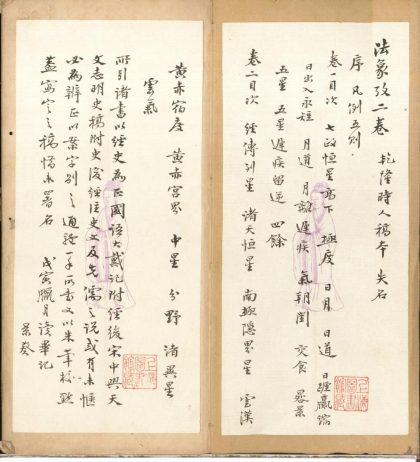 法象攷二卷 乾隆時人稿本 失名
序 凡例五則
卷一目次 七政恒星高下 極度 日月 日道 日躔贏縮
日出入永短 月道 月離遲疾 氣朔閏 交食 晷景
五星 五星遲疾留逆 四餘
卷二目次 經傳列星 諸天恒星 南極隱界星 雲漢
黃赤宿度 黃赤宮界 中星 分野 諸異星
雲氣
所引諸書以經史為正國語大戴記附經後宋中興天
文志明史稿附史後經注史文及先儒之說或有未愜
必為辨正以案字別之通體一手所書又以朱筆校點
蓋寫定之稿惜未署名 戊寅臘月讀畢記
景葵